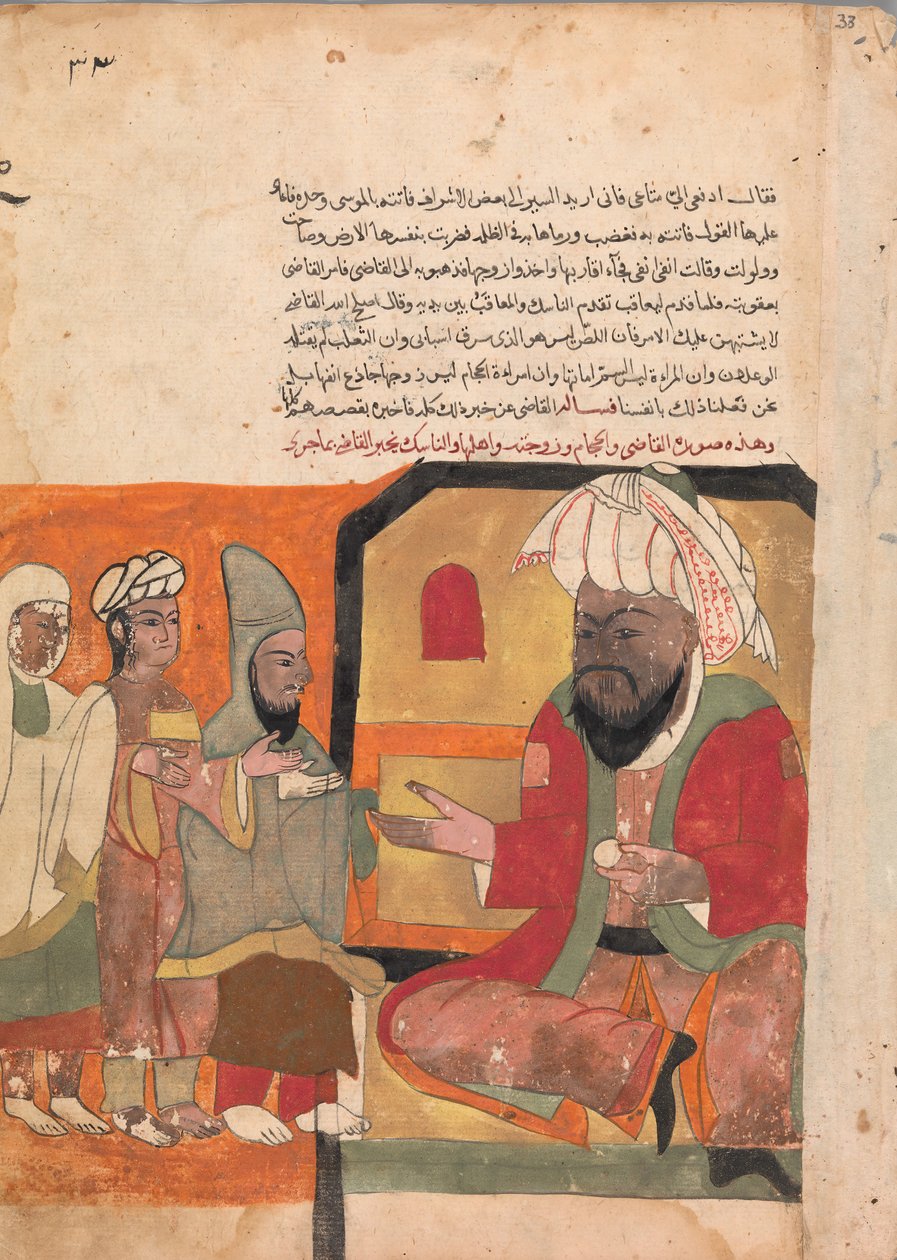 33
٣٣
فقال ادفعى الىّ متاعى فانى اريد السير الى بعض الاشراف فاتته بالموسى وحده فاعاد
عليها القول فاتته به فغضب ورماها به فى الظلمه فضربت بنفسها الارض وصاحت
وولولت وقالت انفى انفى فجآء اقاربها واخذوا زوجها فذهبو به الى القاضى فامر القاضى
بعقوبته فلما قدم ليعاقب تقدم الناسك والمعاقب بين يديه وقال اصلح الله القاضى
لا يشتبهن عليك الامر فان اللص ليس هو الذى سرق اسبابى وان الثعلب لم يقتله
الوعلان وان المراة ليس السم اماتها وان امراة الحجام ليس زوجها جادع انفها بل
نحن فعلنا ذلك بانفسنا فساله القاضى عن خبر ذلك كله فاخبره بقصصهم كلها
وهذه صورة القاضى والحجام وزوجته واهلها والناسك يخبر القاضى بما جرى